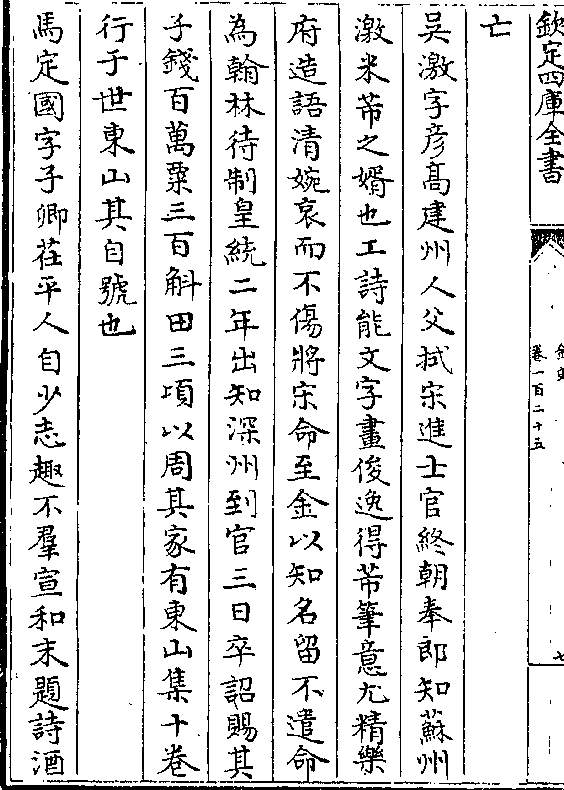 欽定四庫全書
金史
卷一百二十五
七
亡
吳激字彦髙建州人父拭宋進士官終朝奉郎知蘇州
激米芾之婿也工詩能文字畫俊逸得芾筆意尤精樂
府造語清婉哀而不傷將宋命至金以知名留不遣命
為翰林待制皇統二年出知深州到官三日卒詔賜其
子錢百萬粟三百斛田三頃以周其家有東山集十卷
行于世東山其自號也
馬定國字子卿茌平人自少志趣不羣宣和末題詩酒